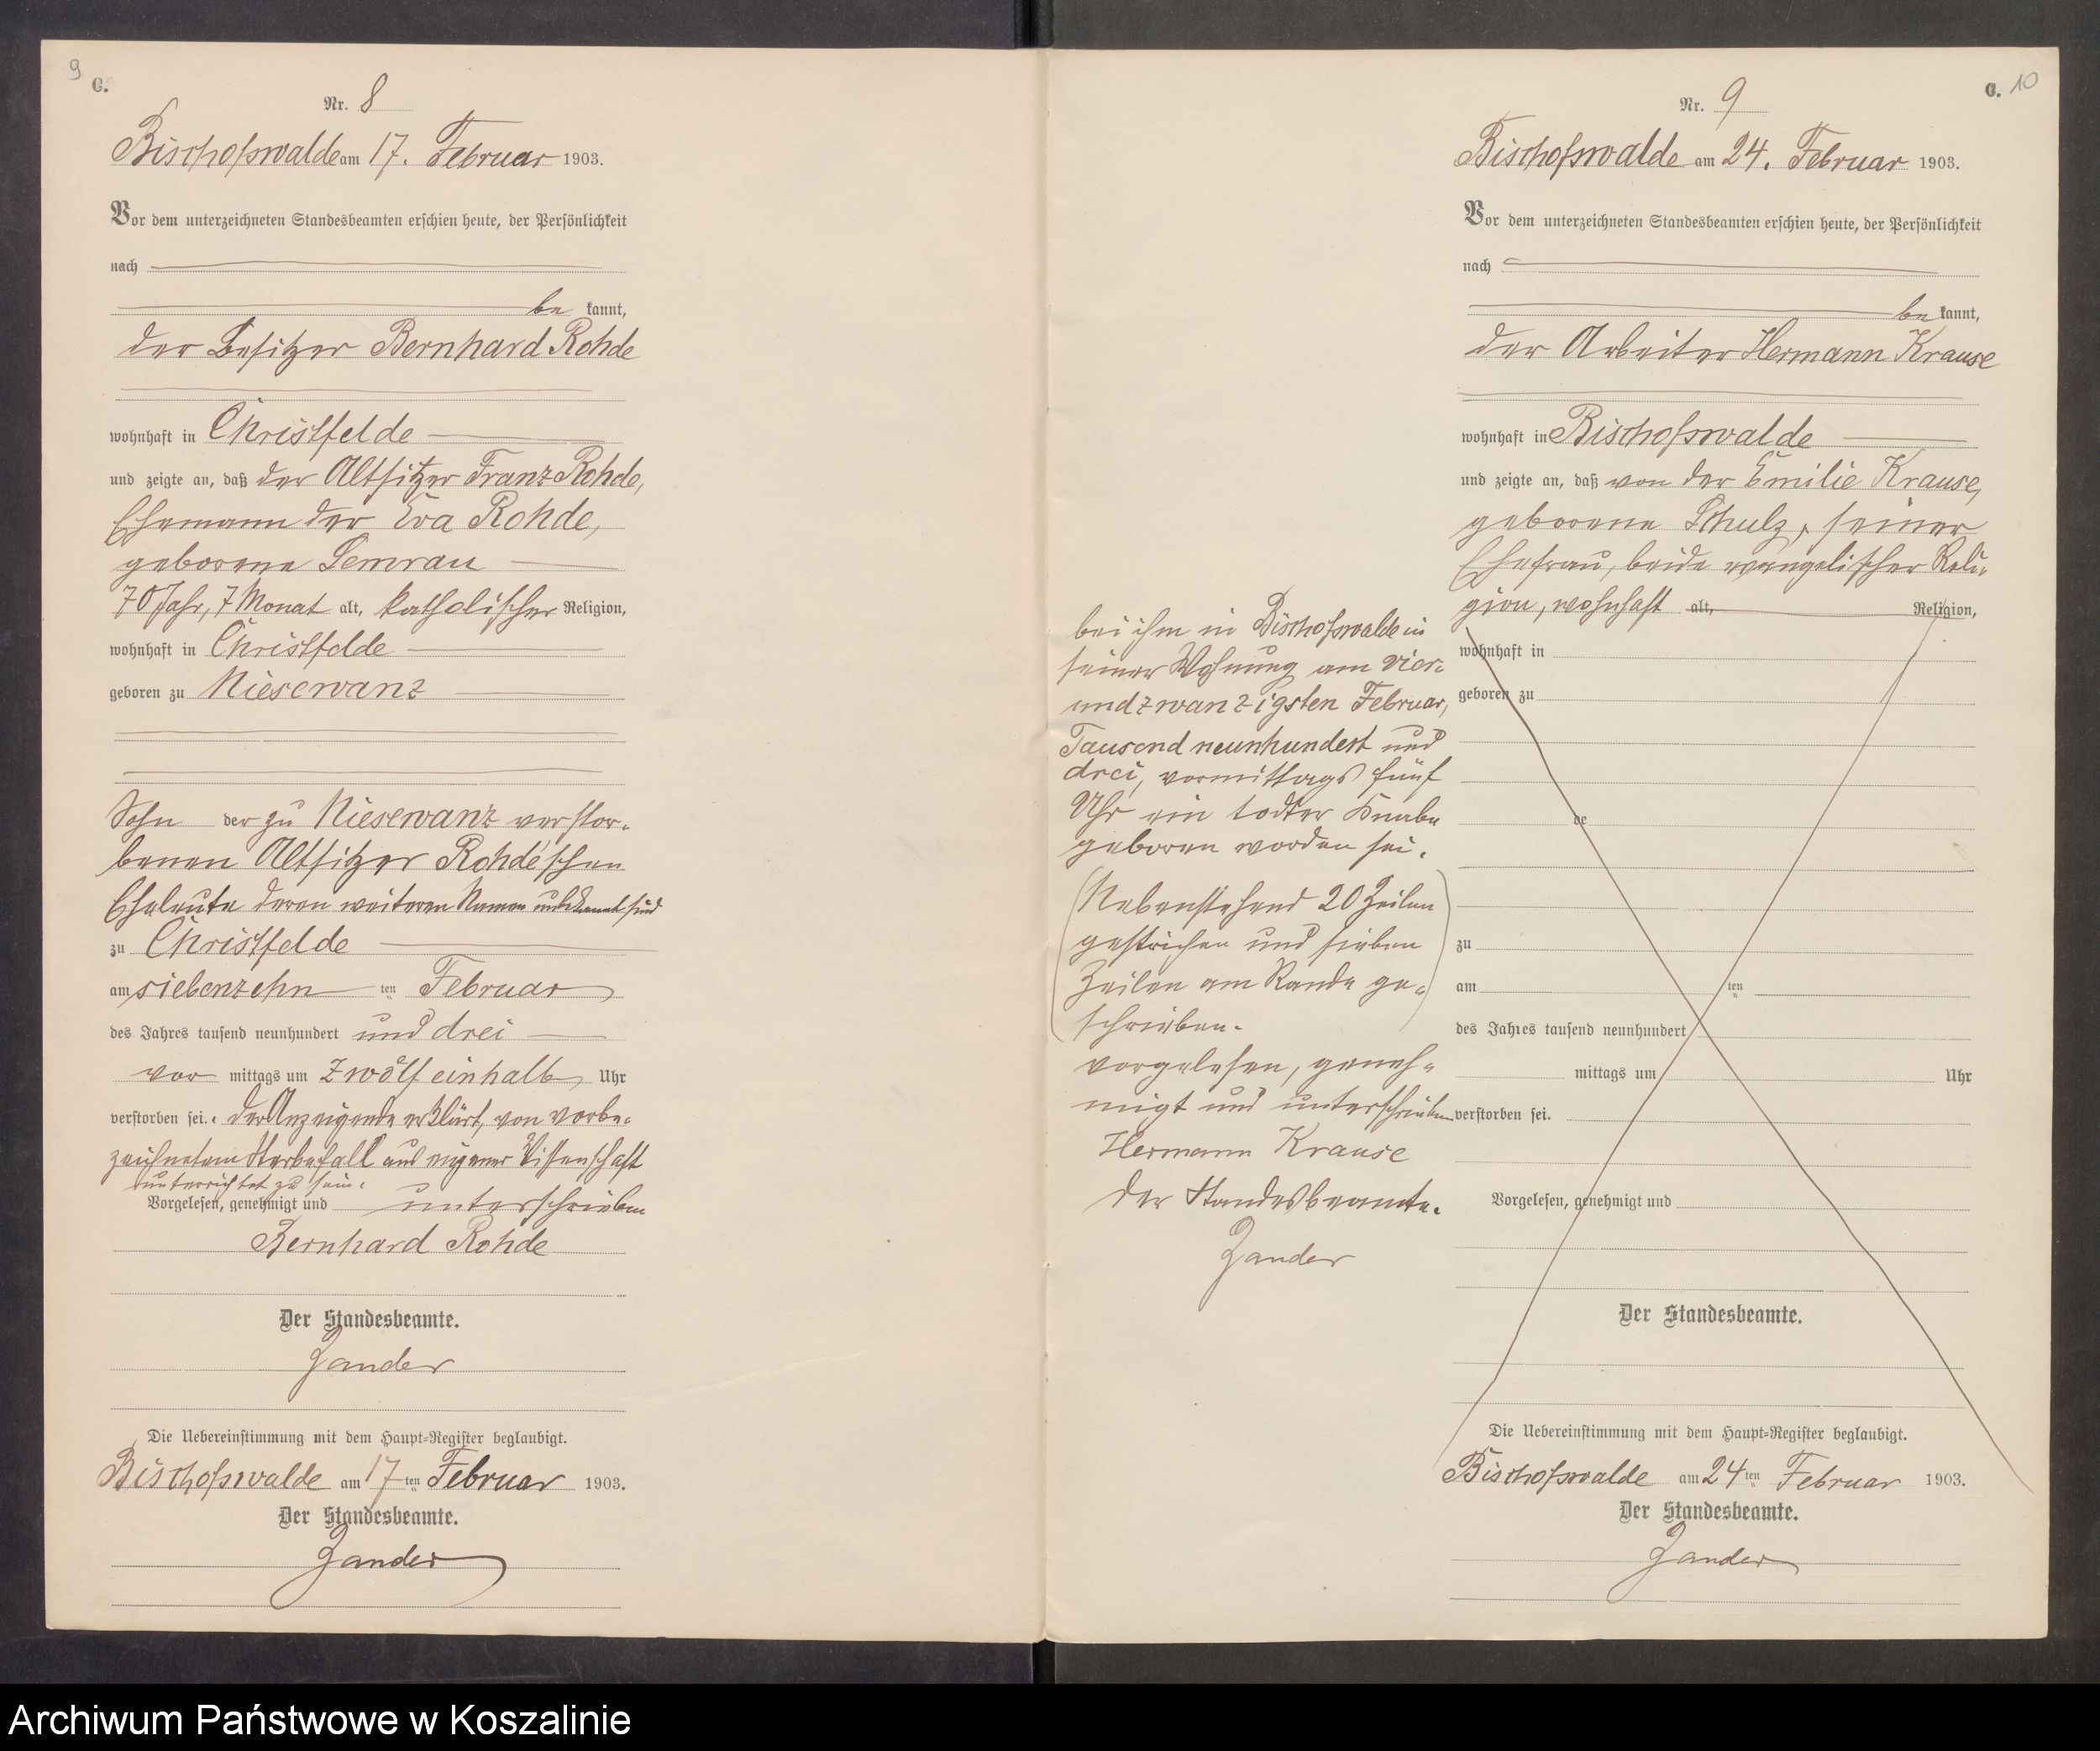 9
C.
Nr. 8
Bischofswalde am 17. Februar 1903.
Vor dem unterzeichneten Standesbeamten erschien heute, der Persönlichkeit
nach
be kannt,
der Besitzer Bernhard Rohde
wohnhaft in Christfelde
und zeigte an, daß der Altsitzer Franz Rohde,
Ehemann der Eva Rohde,
geborene Semrau
70 Jahr, 7 Monat alt, katholischer Religion,
wohnhaft in Christfelde
geboren zu Niesewanz
Sohn der zu Niesewanz verstor-
benen Altsitzer Rohde'schen
Eheleute deren weiteren Namen unbekannt sind
zu Christfelde
am siebenzehn ten Februar
des Jahres tausend neunhundert und drei
vor mittags um zwölf einhalb Uhr
verstorben sei. der Anzeigende erklärt, von vorbe-
zeichnetem Sterbefall aus eigener Wissenschaft
unterrichtet zu sein.
Vorgelesen, genehmigt und unterschrieben
Bernhard Rohde
Der Standesbeamte.
Zander
Die Uebereinstimmung mit dem Haupt-Register beglaubigt.
Bischofswalde am 17 ten Februar 1903.
Der Standesbeamte.
Zander
C. 10
Nr. 9
Bischofswalde am 24. Februar 1903.
Vor dem unterzeichneten Standesbeamten erschien heute, der Persönlichkeit
nach
be kannt,
der Arbeiter Hermann Krause
wohnhaft in Bischofswalde
und zeigte an, daß von der Emilie Krause,
geborene Schulz, seiner
Ehefrau, beide evangelischer Reli-
gion, wohnhaft alt, Religion,
bei ihm in Bischofswalde in
seiner Wohnung am vier-
undzwanzigsten Februar,
Tausend neunhundert und
drei, vormittags fünf
Uhr ein todter Knabe
geboren worden sei.
(Nebenstehend 20 Zeilen
gestrichen und sieben
Zeilen am Rande ge-)
schrieben.
vorgelesen, geneh-
migt und unterschrieben
Hermann Krause
Der Standesbeamte.
Zander
wohnhaft in
geboren zu
de
zu
am ten
des Jahres tausend neunhundert
mittags um Uhr
verstorben sei.
Vorgelesen, genehmigt und
Der Standesbeamte.
Die Uebereinstimmung mit dem Haupt-Register beglaubigt.
Bischofswalde am 24 ten Februar 1903.
Der Standesbeamte.
Zander
Archiwum Państwowe w Koszalinie